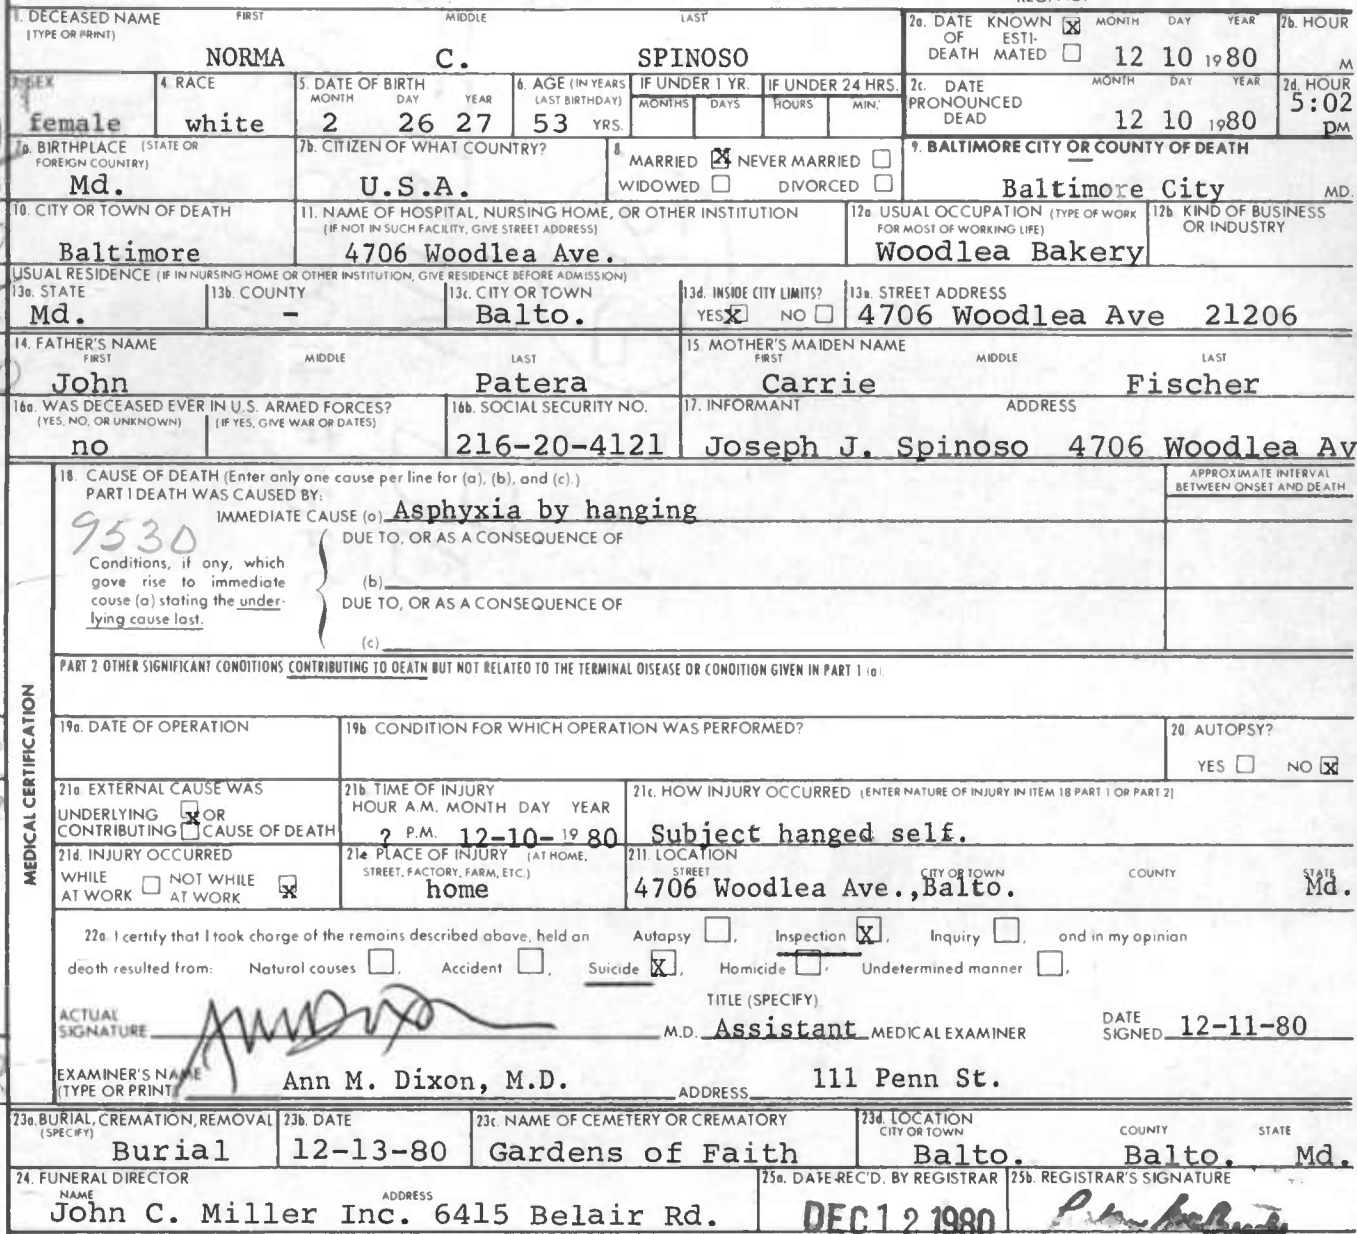 1. DECEASED NAME FIRST MIDDLE LAST
(TYPE OR PRINT)
NORMA C. SPINOSO
2a. DATE OF DEATH KNOWN X ESTIMATED MONTH DAY YEAR
12 10 1980
2b. HOUR
M
3. SEX
female
4. RACE
white
5. DATE OF BIRTH
MONTH DAY YEAR
2 26 27
6. AGE (IN YEARS LAST BIRTHDAY)
53 YRS.
IF UNDER 1 YR.
MONTHS DAYS
IF UNDER 24 HRS.
HOURS MIN.
2c. DATE PRONOUNCED DEAD MONTH DAY YEAR
12 10 1980
2d. HOUR
5:02
PM
7a. BIRTHPLACE (STATE OR FOREIGN COUNTRY)
Md.
7b. CITIZEN OF WHAT COUNTRY?
U.S.A.
8. MARRIED X NEVER MARRIED
WIDOWED DIVORCED
9. BALTIMORE CITY OR COUNTY OF DEATH
Baltimore City MD.
10. CITY OR TOWN OF DEATH
Baltimore
11. NAME OF HOSPITAL, NURSING HOME, OR OTHER INSTITUTION
(IF NOT IN SUCH FACILITY, GIVE STREET ADDRESS)
4706 Woodlea Ave.
12a. USUAL OCCUPATION (TYPE OF WORK FOR MOST OF WORKING LIFE)
Woodlea Bakery
12b. KIND OF BUSINESS OR INDUSTRY
USUAL RESIDENCE (IF IN NURSING HOME OR OTHER INSTITUTION, GIVE RESIDENCE BEFORE ADMISSION)
13a. STATE
Md.
13b. COUNTY
-
13c. CITY OR TOWN
Balto.
13d. INSIDE CITY LIMITS?
YES X NO
13e. STREET ADDRESS
4706 Woodlea Ave 21206
14. FATHER'S NAME
FIRST MIDDLE LAST
John Patera
15. MOTHER'S MAIDEN NAME
FIRST MIDDLE LAST
Carrie Fischer
16a. WAS DECEASED EVER IN U.S. ARMED FORCES?
(YES, NO, OR UNKNOWN) (IF YES, GIVE WAR OR DATES)
no
16b. SOCIAL SECURITY NO.
216-20-4121
17. INFORMANT ADDRESS
Joseph J. Spinoso 4706 Woodlea Av
MEDICAL CERTIFICATION
18. CAUSE OF DEATH (Enter only one cause per line for (a), (b), and (c).)
PART I DEATH WAS CAUSED BY:
APPROXIMATE INTERVAL BETWEEN ONSET AND DEATH
IMMEDIATE CAUSE (a) Asphyxia by hanging
9530
DUE TO, OR AS A CONSEQUENCE OF
Conditions, if any, which
gave rise to immediate
cause (a) stating the under-
lying cause last.
(b)
DUE TO, OR AS A CONSEQUENCE OF
(c)
PART 2 OTHER SIGNIFICANT CONDITIONS CONTRIBUTING TO DEATH BUT NOT RELATED TO THE TERMINAL DISEASE OR CONDITION GIVEN IN PART 1 (a).
19a. DATE OF OPERATION
19b. CONDITION FOR WHICH OPERATION WAS PERFORMED?
20. AUTOPSY?
YES NO X
21a. EXTERNAL CAUSE WAS
UNDERLYING X OR
CONTRIBUTING CAUSE OF DEATH
21b. TIME OF INJURY
HOUR A.M. MONTH DAY YEAR
? P.M. 12-10-1980
21c. HOW INJURY OCCURRED (ENTER NATURE OF INJURY IN ITEM 18 PART 1 OR PART 2)
Subject hanged self.
21d. INJURY OCCURRED
WHILE AT WORK NOT WHILE AT WORK X
21e. PLACE OF INJURY (AT HOME, STREET, FACTORY, FARM, ETC.)
home
21f. LOCATION
STREET CITY OR TOWN COUNTY STATE
4706 Woodlea Ave.,Balto. Md.
22a. I certify that I took charge of the remains described above, held an Autopsy , Inspection X, Inquiry , and in my opinion
death resulted from: Natural causes , Accident , Suicide X, Homicide , Undetermined manner .
ACTUAL SIGNATURE Ann M Dixon M.D.
TITLE (SPECIFY)
Assistant MEDICAL EXAMINER
DATE SIGNED 12-11-80
EXAMINER'S NAME (TYPE OR PRINT) Ann M. Dixon, M.D.
ADDRESS 111 Penn St.
23a. BURIAL, CREMATION, REMOVAL (SPECIFY)
Burial
23b. DATE
12-13-80
23c. NAME OF CEMETERY OR CREMATORY
Gardens of Faith
23d. LOCATION
CITY OR TOWN COUNTY STATE
Balto. Balto. Md.
24. FUNERAL DIRECTOR
NAME ADDRESS
John C. Miller Inc. 6415 Belair Rd.
25a. DATE REC'D. BY REGISTRAR
DEC 12 1980
25b. REGISTRAR'S SIGNATURE